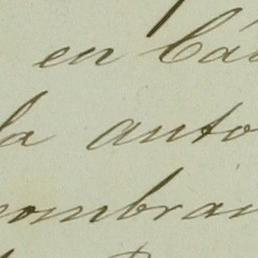 en Cá
la anto
nombra